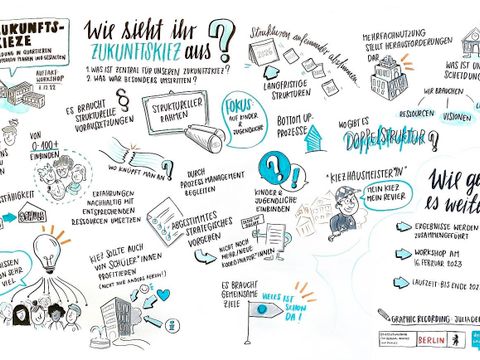 ZUKUNFTS-
KIEZE
AUFTAKT-
WORKSHOP
6.12.22
Wie sieht ihr
ZUKUNFTSKIEZ aus?
1. WAS IST ZENTRAL FÜR UNSEREN ZUKUNFTSKIEZ?
2. WAR WAR BESONDERS UMSTRITTEN?
ES BRAUCHT
STRUKTURELLE
VORAUSSETZUNGEN
§
STRUKTURELLER
RAHMEN
FOKUS:
AUF KINDER
& JUGENDLICHE
Strukturen aufeinander abstimmen
2026
LANGFRISTIGE
STRUKTUREN
MEHRFACHNUTZUNG
STELLT HERAUSFORDERUNGEN
DAR
WAS IST
SCHEIDUNG
WIR BRAUCHEN
RESSOURCEN
VISIONEN
BOTTOM UP-
PROZESSE
WO GIBT ES
DOPPELSTRUKTUR?
VON
0-100+
EINBINDEN
WO KNÜPFT MAN AN?
ERFAHRUNGEN
NACHHALTIG MIT
ENTSPRECHENDEN
RESSOURCEN UMSETZEN
DURCH
PROZESS MANAGEMENT
BEGLEITEN
KINDER &
JUGENDLICHE
EINBINDEN
"KIEZHAUSMEISTER*IN"
MEIN KIEZ
MEIN REVIER.
ABGESTIMMTES
STRATEGISCHES
VORGEHEN
NICHT NOCH
MEHR NEUE
KOORDINATOR*INNEN
KIEZ SOLLTE AUCH
VON SCHÜLER*INNEN
PROFITIEREN
(NICHT NUR ANDERS HERUM!)
WISSEN
SEHR
VIEL
ES BRAUCHT
GEMEINSAME
ZIELE
VIELES IST
SCHON
DA!
Wie ge
es weite
ERGEBNISSE WERDEN
ZUSAMMENGEFÜHRT
WORKSHOP AM
16. FEBRUAR 2023
LAUFZEIT BIS ENDE 202
GRAPHIC RECORDING: JULIADER
BERLIN